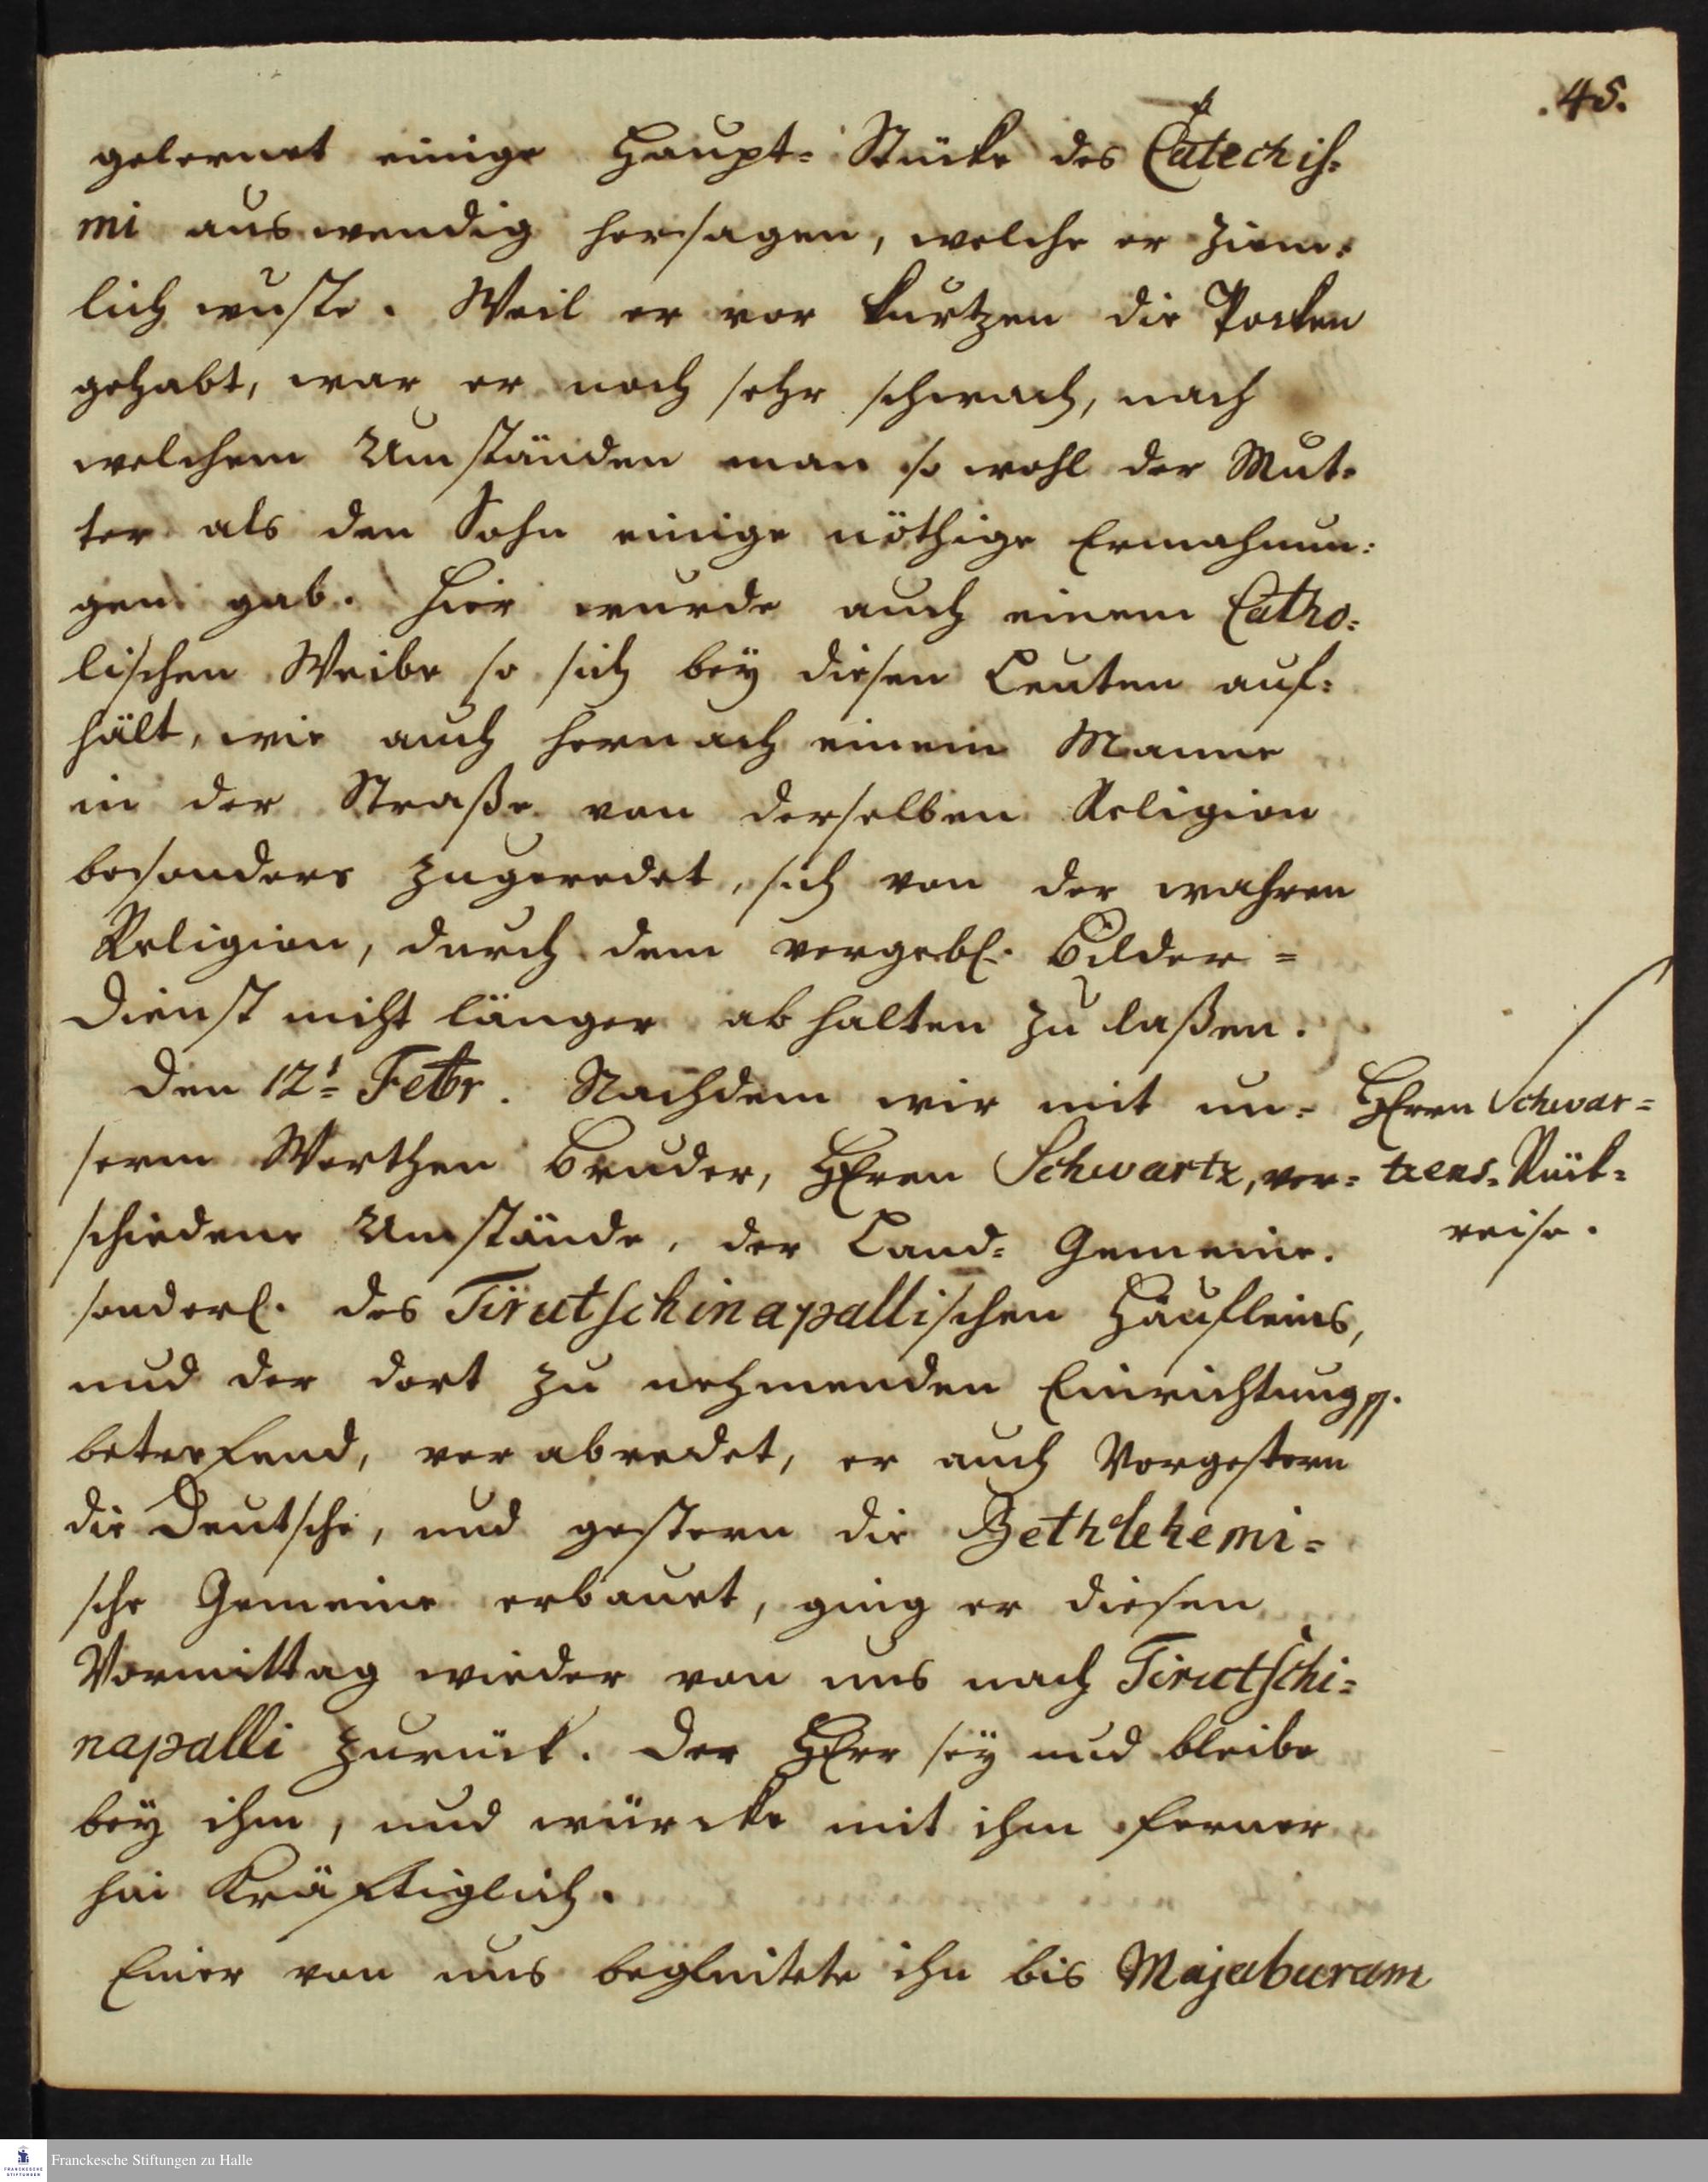 .45.
gelernet einige Haupt= Stücke des Catechis=
mi auswendig hersagen, welche er ziem=
lich wuste. Weil er vor kurtzen die Pocken
gehabt, war er noch sehr schwach, nach
welchem Umständen man so wohl der Mut=
ter als den Sohn einige nöthige Ermahnun=
gen gab. Hier wurde auch einem Catho=
lischen Weibe so sich bey diesen Leuten auf=
hält, wie auch hernach einem Manne
in der Straße von derselben Religion
besonders zugeredet, sich von der wahren
Religion, durch dem vergebl. Bilder=
Dienst nicht länger abhalten zu laßen.
Den 12t= Febr. Nachdem wir mit un=
serm Werthen Bruder, HErrn Schwartz, ver=
schiedene Umstände, der Land= Gemeine.
sonderl. des Tirutschinapallischen Häufleins,
und der dort zu nehmenden Einrichtung pp.
beteefend, verabredet, er auch Vorgestern
die Deutsche, und gestern die Bethlehemi=
sche Gemeine erbauet, ging er diesen
Vormittag wieder von uns nach Tirutschi=
napalli zurück. Der HErr sey und bleibe
bey ihm, und würcke mit ihm ferner
hin Kräftiglich.
Einer von uns begleitete ihn bis Majaburam
HErrn Schwar=
tzens Rük=
reise.
Franckesche Stiftungen zu Halle
FRANCKESCHE
STIFTUNGEN